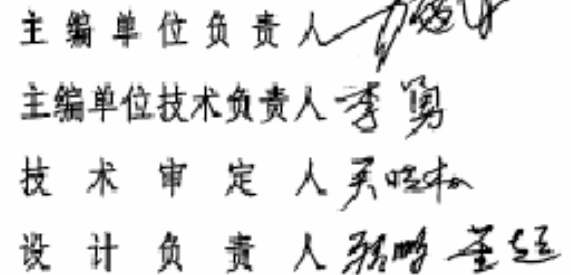 主编单位负责人
主编单位技术负责人 李勇
技术审定人
设计负责人